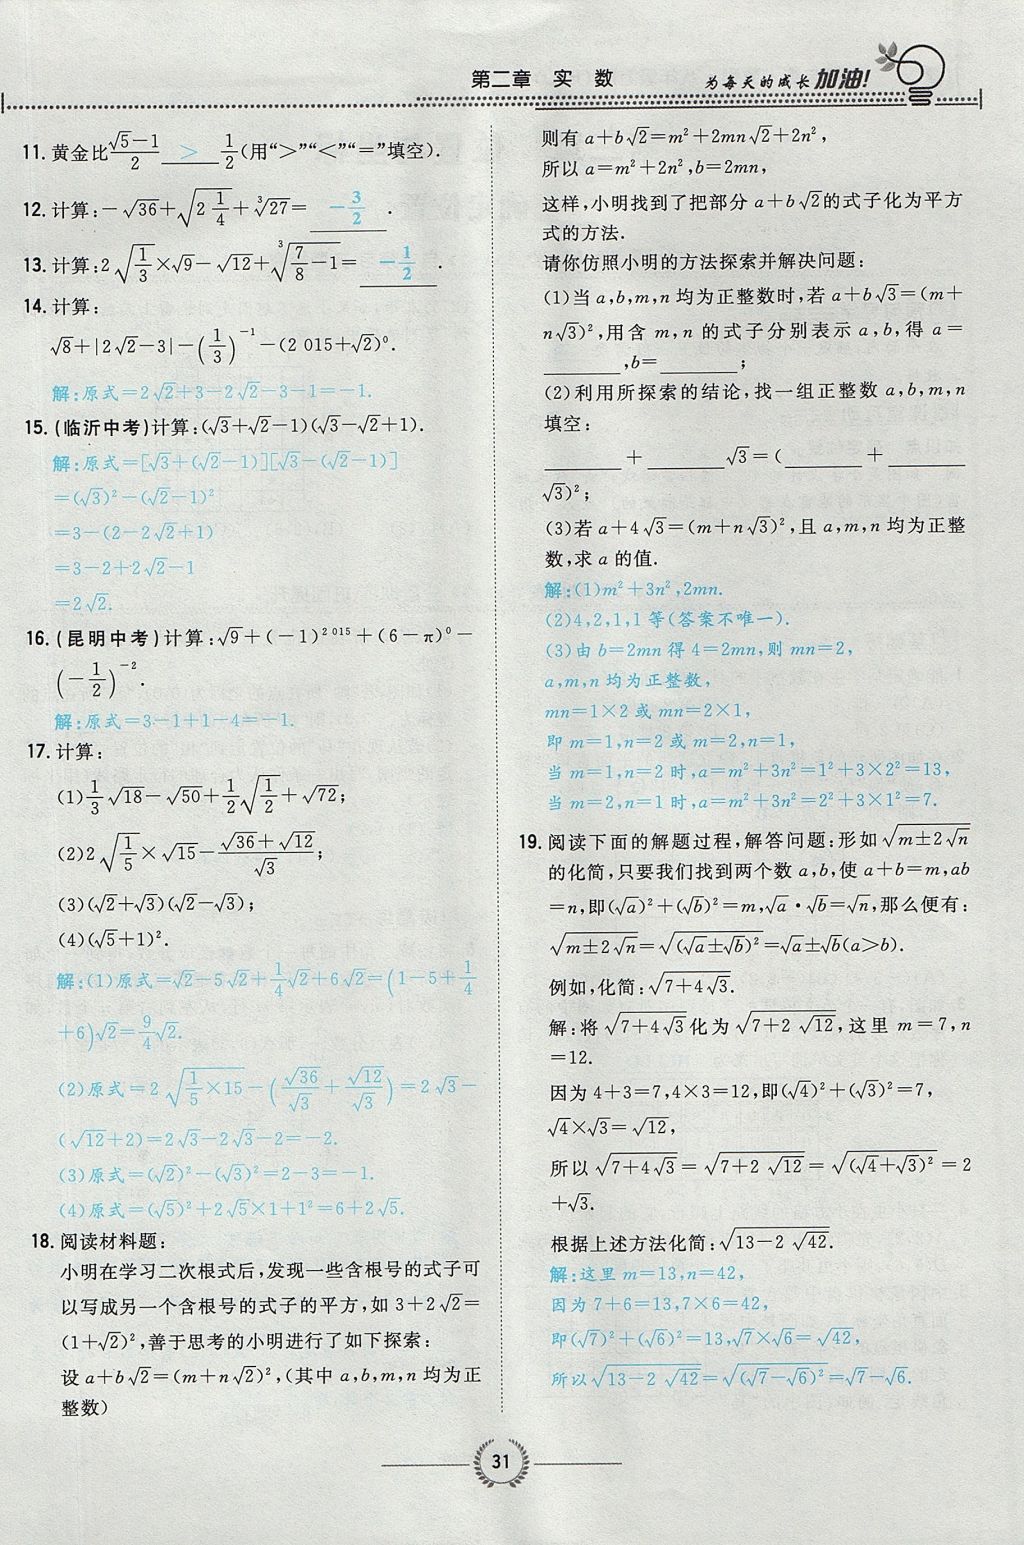 第二章 实 数
为每天的成长加油!
11. 黄金比(√5-1)/2 > 1/2(用“>”“<”“=”填空).
12. 计算:-√36+√(2 1/4)+∛27= -3/2 .
13. 计算:2√(1/3)×√9-√12+∛(7/8-1)= -1/2 .
14. 计算:
√8+|2√2-3|-(1/3)⁻¹-(2 015+√2)⁰.
解:原式=2√2+3-2√2-3-1=-1.
15. (临沂中考)计算:(√3+√2-1)(√3-√2+1).
解:原式=[√3+(√2-1)][√3-(√2-1)]
=(√3)²-(√2-1)²
=3-(2-2√2+1)
=3-2+2√2-1
=2√2.
16. (昆明中考)计算:√9+(-1)²⁰¹⁵+(6-π)⁰-
(-1/2)⁻².
解:原式=3-1+1-4=-1.
17. 计算:
(1)1/3√18-√50+1/2√(1/2)+√72;
(2)2√(1/5)×√15-(√36+√12)/√3;
(3)(√2+√3)(√2-√3);
(4)(√5+1)².
解:(1)原式=√2-5√2+1/4√2+6√2=(1-5+1/4
+6)√2=9/4√2.
(2)原式=2√(1/5×15)-(√36/√3+√12/√3)=2√3-
(√12+2)=2√3-2√3-2=-2.
(3)原式=(√2)²-(√3)²=2-3=-1.
(4)原式=(√5)²+2√5×1+1²=6+2√5.
18. 阅读材料题:
小明在学习二次根式后,发现一些含根号的式子可
以写成另一个含根号的式子的平方,如3+2√2=
(1+√2)²,善于思考的小明进行了如下探索:
设a+b√2=(m+n√2)²,(其中a,b,m,n均为正
整数)
则有a+b√2=m²+2mn√2+2n²,
所以a=m²+2n²,b=2mn,
这样,小明找到了把部分a+b√2的式子化为平方
式的方法.
请你仿照小明的方法探索并解决问题:
(1)当a,b,m,n均为正整数时,若a+b√3=(m+
n√3)²,用含m,n的式子分别表示a,b,得a=
______,b=______;
(2)利用所探索的结论,找一组正整数a,b,m,n
填空:
______+______√3=(______+______
√3)²;
(3)若a+4√3=(m+n√3)²,且a,m,n均为正整
数,求a的值.
解:(1)m²+3n²,2mn.
(2)4,2,1,1等(答案不唯一).
(3)由b=2mn得4=2mn,则mn=2,
a,m,n均为正整数,
mn=1×2或mn=2×1,
即m=1,n=2或m=2,n=1,
当m=1,n=2时,a=m²+3n²=1²+3×2²=13,
当m=2,n=1时,a=m²+3n²=2²+3×1²=7.
19. 阅读下面的解题过程,解答问题:形如√(m±2√n)
的化简,只要我们找到两个数a,b,使a+b=m,ab
=n,即(√a)²+(√b)²=m,√a·√b=√n,那么便有:
√(m±2√n)=√((√a±√b)²)=√a±√b(a>b).
例如,化简:√(7+4√3).
解:将√(7+4√3)化为√(7+2√12),这里m=7,n
=12.
因为4+3=7,4×3=12,即(√4)²+(√3)²=7,
√4×√3=√12,
所以√(7+4√3)=√(7+2√12)=√((√4+√3)²)=2
+√3.
根据上述方法化简:√(13-2√42).
解:这里m=13,n=42,
因为7+6=13,7×6=42,
即(√7)²+(√6)²=13,√7×√6=√42,
所以√(13-2√42)=√((√7-√6)²)=√7-√6.
31